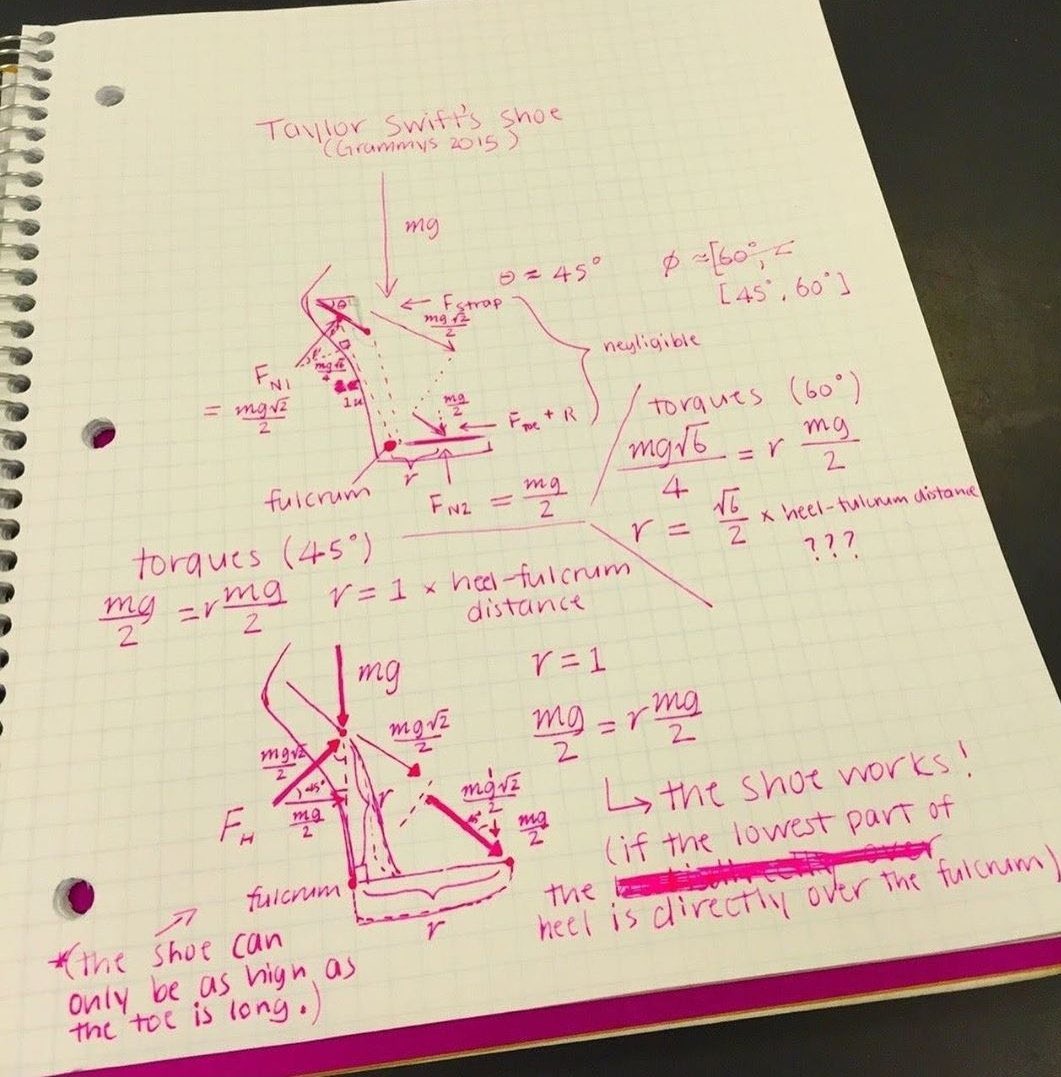 Taylor Swift's shoe
(Grammys 2015)
mg
θ ≈ 45°
φ ≈ [60°,
[45°, 60°]
← Fstrap
mg√2/2
negligible
θ
FN1
= mg√2/2
mg√6/4
mg/2
← Ftoe + R
r
fulcrum
FN2 = mg/2
torques (60°)
mg√6/4 = r mg/2
r = √6/2 × heel-fulcrum distance
???
torques (45°)
mg/2 = r mg/2 r = 1 × heel-fulcrum
distance
mg
r = 1
mg/2 = r mg/2
mg√2/2
mg√2/2
45°
mg/2
FH
r
mg√2/2
45°
mg/2
fulcrum
r
↳ the shoe works!
(if the lowest part of
the
heel is directly over the fulcrum)
*(the shoe can
only be as high as
the toe is long.)